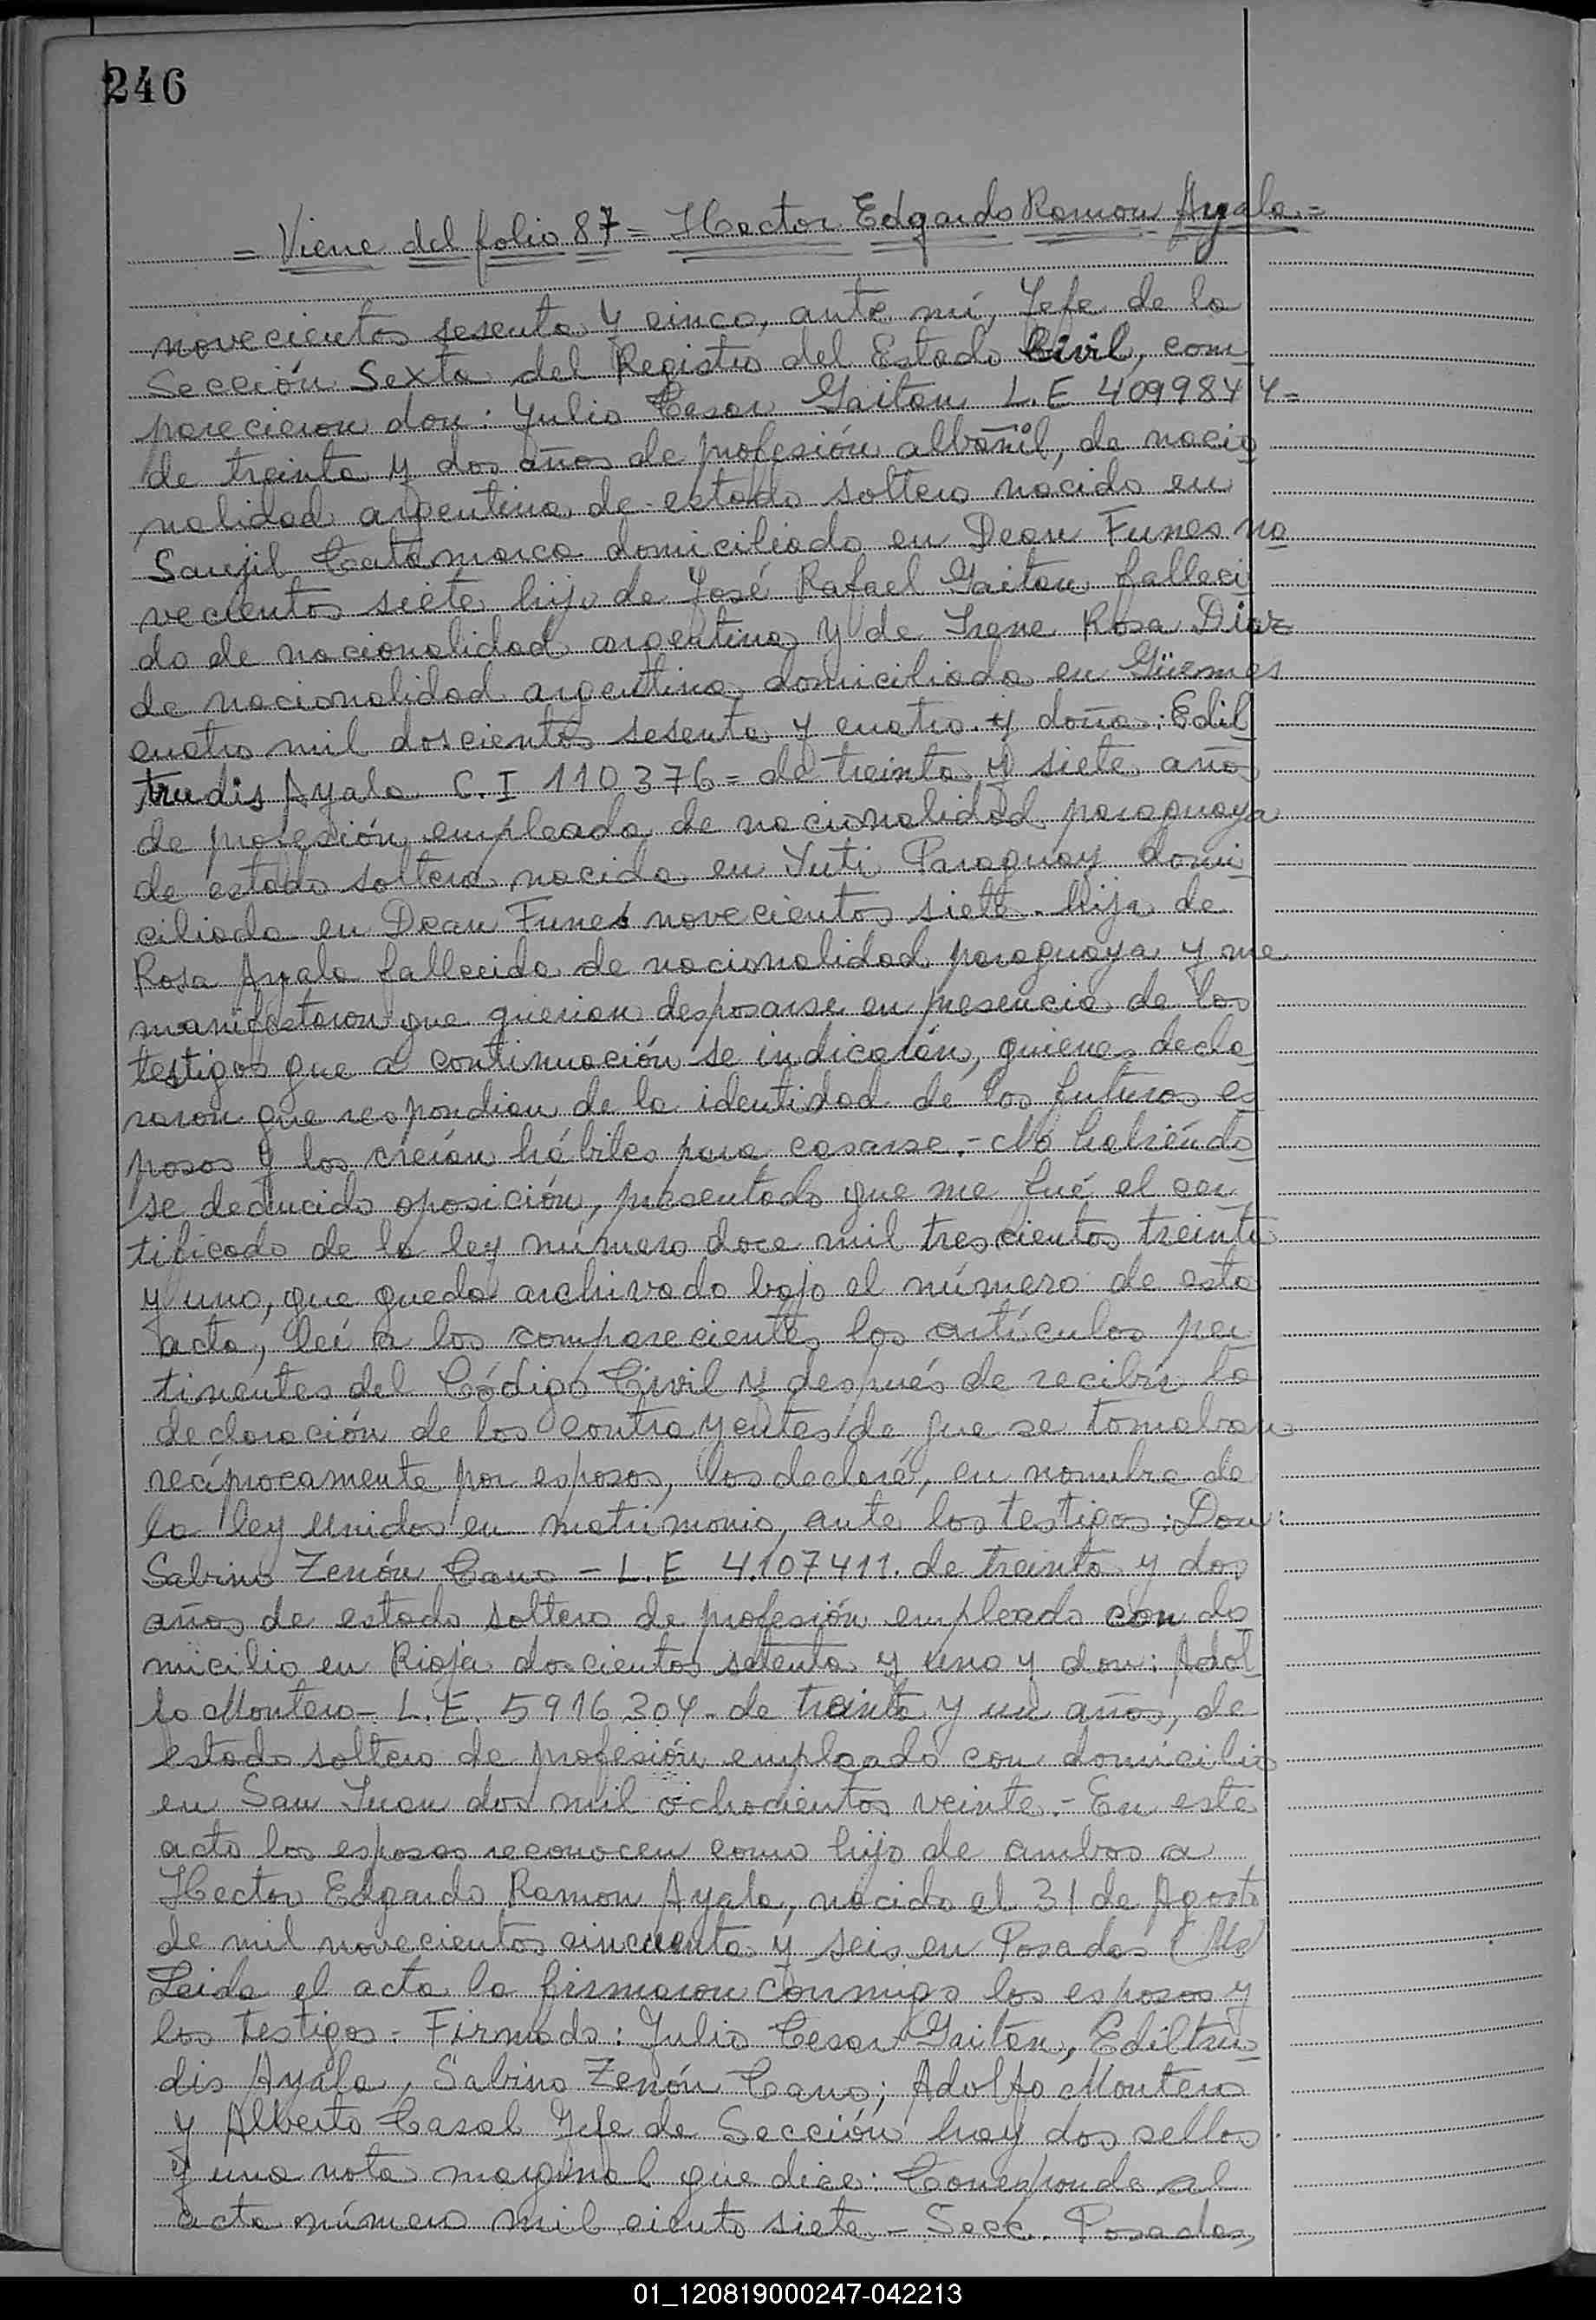 246
= Viene del folio 87 = Hector Edgardo Ramon Ayala. =
novecientos sesenta y cinco, ante mí, Jefe de la
Sección Sexta del Registro del Estado Civil, com
parecieron don: Julio Cesar Gaitan L.E 4099844 =
de treinta y dos años de profesión albañil, de nacio
nalidad argentina de estado soltero nacido en
Saujil Catamarca domiciliado en Dean Funes no
vecientos siete hijo de José Rafael Gaitan falleci
do de nacionalidad argentina y de Irene Rosa Diaz
de nacionalidad argentina domiciliada en Güemes
cuatro mil doscientos sesenta y cuatro. y doña: Edil
trudis Ayala C.I 110376 = de treinta y siete años
de profesión empleada de nacionalidad paraguaya
de estado soltera nacida en Yuti Paraguay domi
ciliada en Dean Funes novecientos siete. hija de
Rosa Ayala fallecida de nacionalidad paraguaya y me
manifestaron que querian desposarse en presencia de los
testigos que a continuación se indicarán, quienes decla
raron que respondian de la identidad de los futuros es
posos y los creían hábiles para casarse. - No habiéndo
se deducido oposición, presentado que me fué el cer
tificado de la ley número doce mil trescientos treinta
y uno, que queda archivado bajo el número de esta
acta, leí a los comparecientes los artículos per
tinentes del Código Civil y después de recibir la
declaración de los contrayentes de que se tomaban
recíprocamente por esposos, los declaré, en nombre de
la ley unidos en matrimonio, ante los testigos: Don:
Sabino Zenón Cano - L.E 4.107411. de treinta y dos
años de estado soltero de profesión empleado con do
micilio en Rioja doscientos setenta y uno y don: Adol
fo Montero - L.E. 5916304 - de treinta y un años, de
estado soltero de profesión empleado con domicilio
en San Juan dos mil ochocientos veinte. - En este
acto los esposos reconocen como hijo de ambos a
Hector Edgardo Ramon Ayala, nacido el 31 de Agosto
de mil novecientos cincuenta y seis en Posadas
Leida el acta la firmaron conmigo los esposos y
los testigos - Firmado: Julio Cesar Gaitán, Ediltru
dis Ayala, Sabino Zenón Cano; Adolfo Montero
y Alberto Casal Jefe de Sección hay dos sellos.
y una nota marginal que dice: Corresponde al
acta número mil ciento siete - Secc. Posadas,
01_120819000247-042213